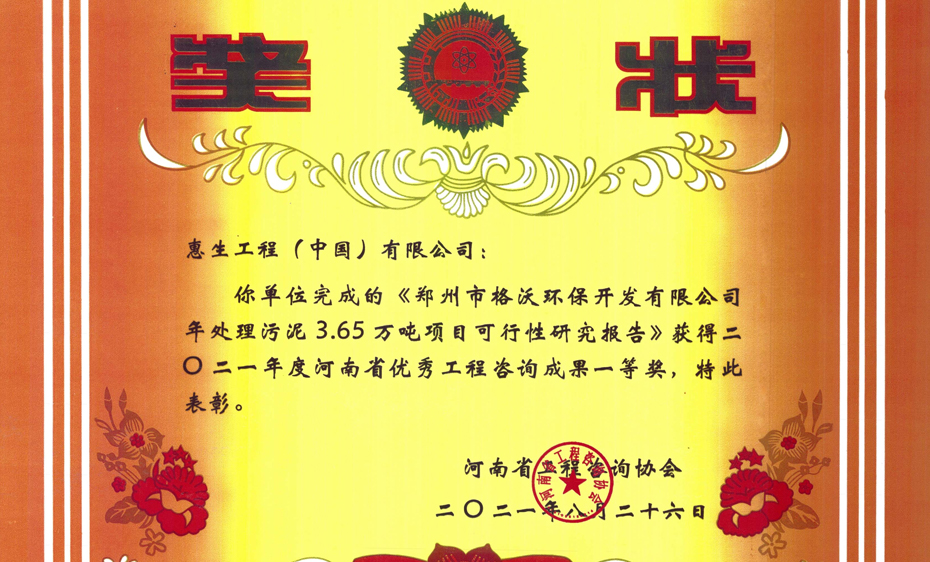 奖状
惠生工程（中国）有限公司：
你单位完成的《郑州市格沃环保开发有限公司
年处理污泥3.65万吨项目可行性研究报告》获得二
〇二一年度河南省优秀工程咨询成果一等奖，特此
表彰。
河南省工程咨询协会
二〇二一年八月二十六日
河南省工程咨询协会